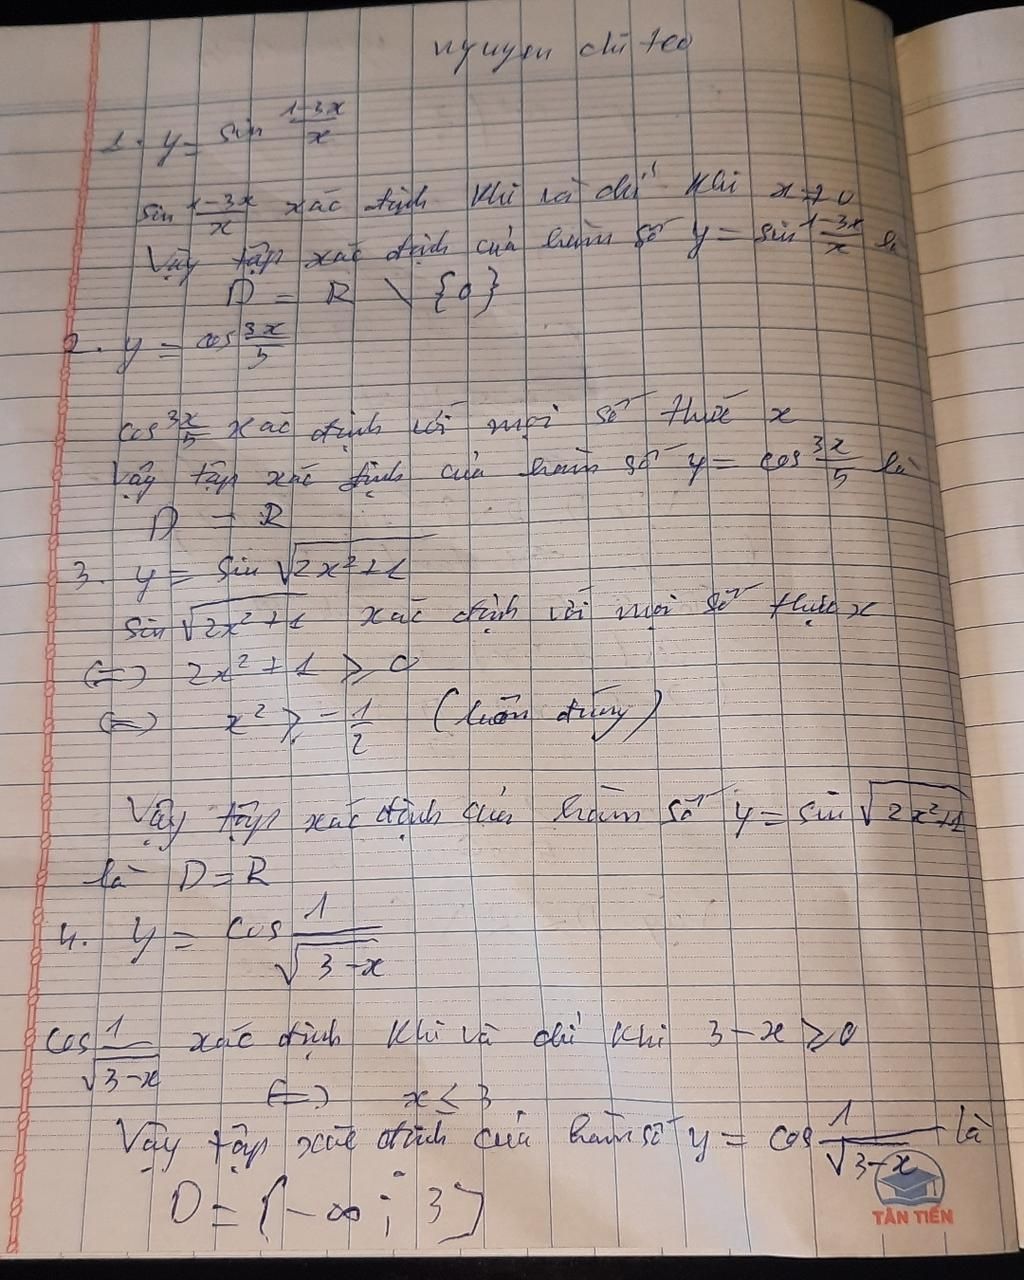 nguyen chí teo
1. y = sin (1-3x)/x
sin (1-3x)/x xác định khi và chỉ khi x ≠ 0
Vậy tập xác định của hàm số y = sin (1-3x)/x là
D = R \ {0}
2. y = cos 3x/5
cos 3x/5 xác định với mọi số thức x
Vậy tập xác định của hàm số y = cos 3x/5 là
D = R
3. y = sin √(2x²+1)
sin √(2x²+1) xác định với mọi số thực x
(=) 2x² + 1 ≥ 0
(=) x² ≥ -1/2 (luôn đúng)
Vậy tập xác định của hàm số y = sin √(2x²+1)
là D = R
4. y = cos 1/√(3-x)
cos 1/√(3-x) xác định khi và chỉ khi 3 - x ≥ 0
(=) x ≤ 3
Vậy tập xác định của hàm số y = cos 1/√(3-x) là
D = (-∞; 3]
TÂN TIẾN